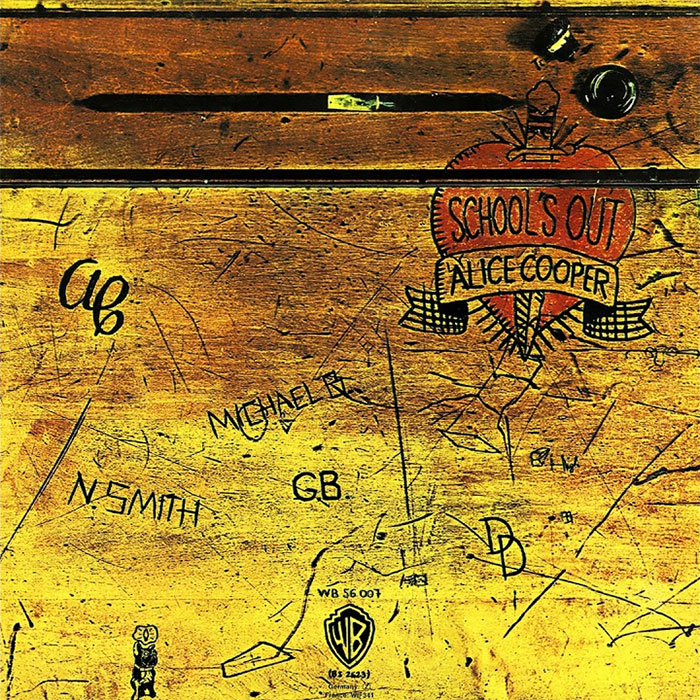 SCHOOL'S OUT
ALICE COOPER
MICHAEL B.
G.B.
N. SMITH
DD
WB 56 007
WB
(BS 2623)
Germany:
France: WE 341